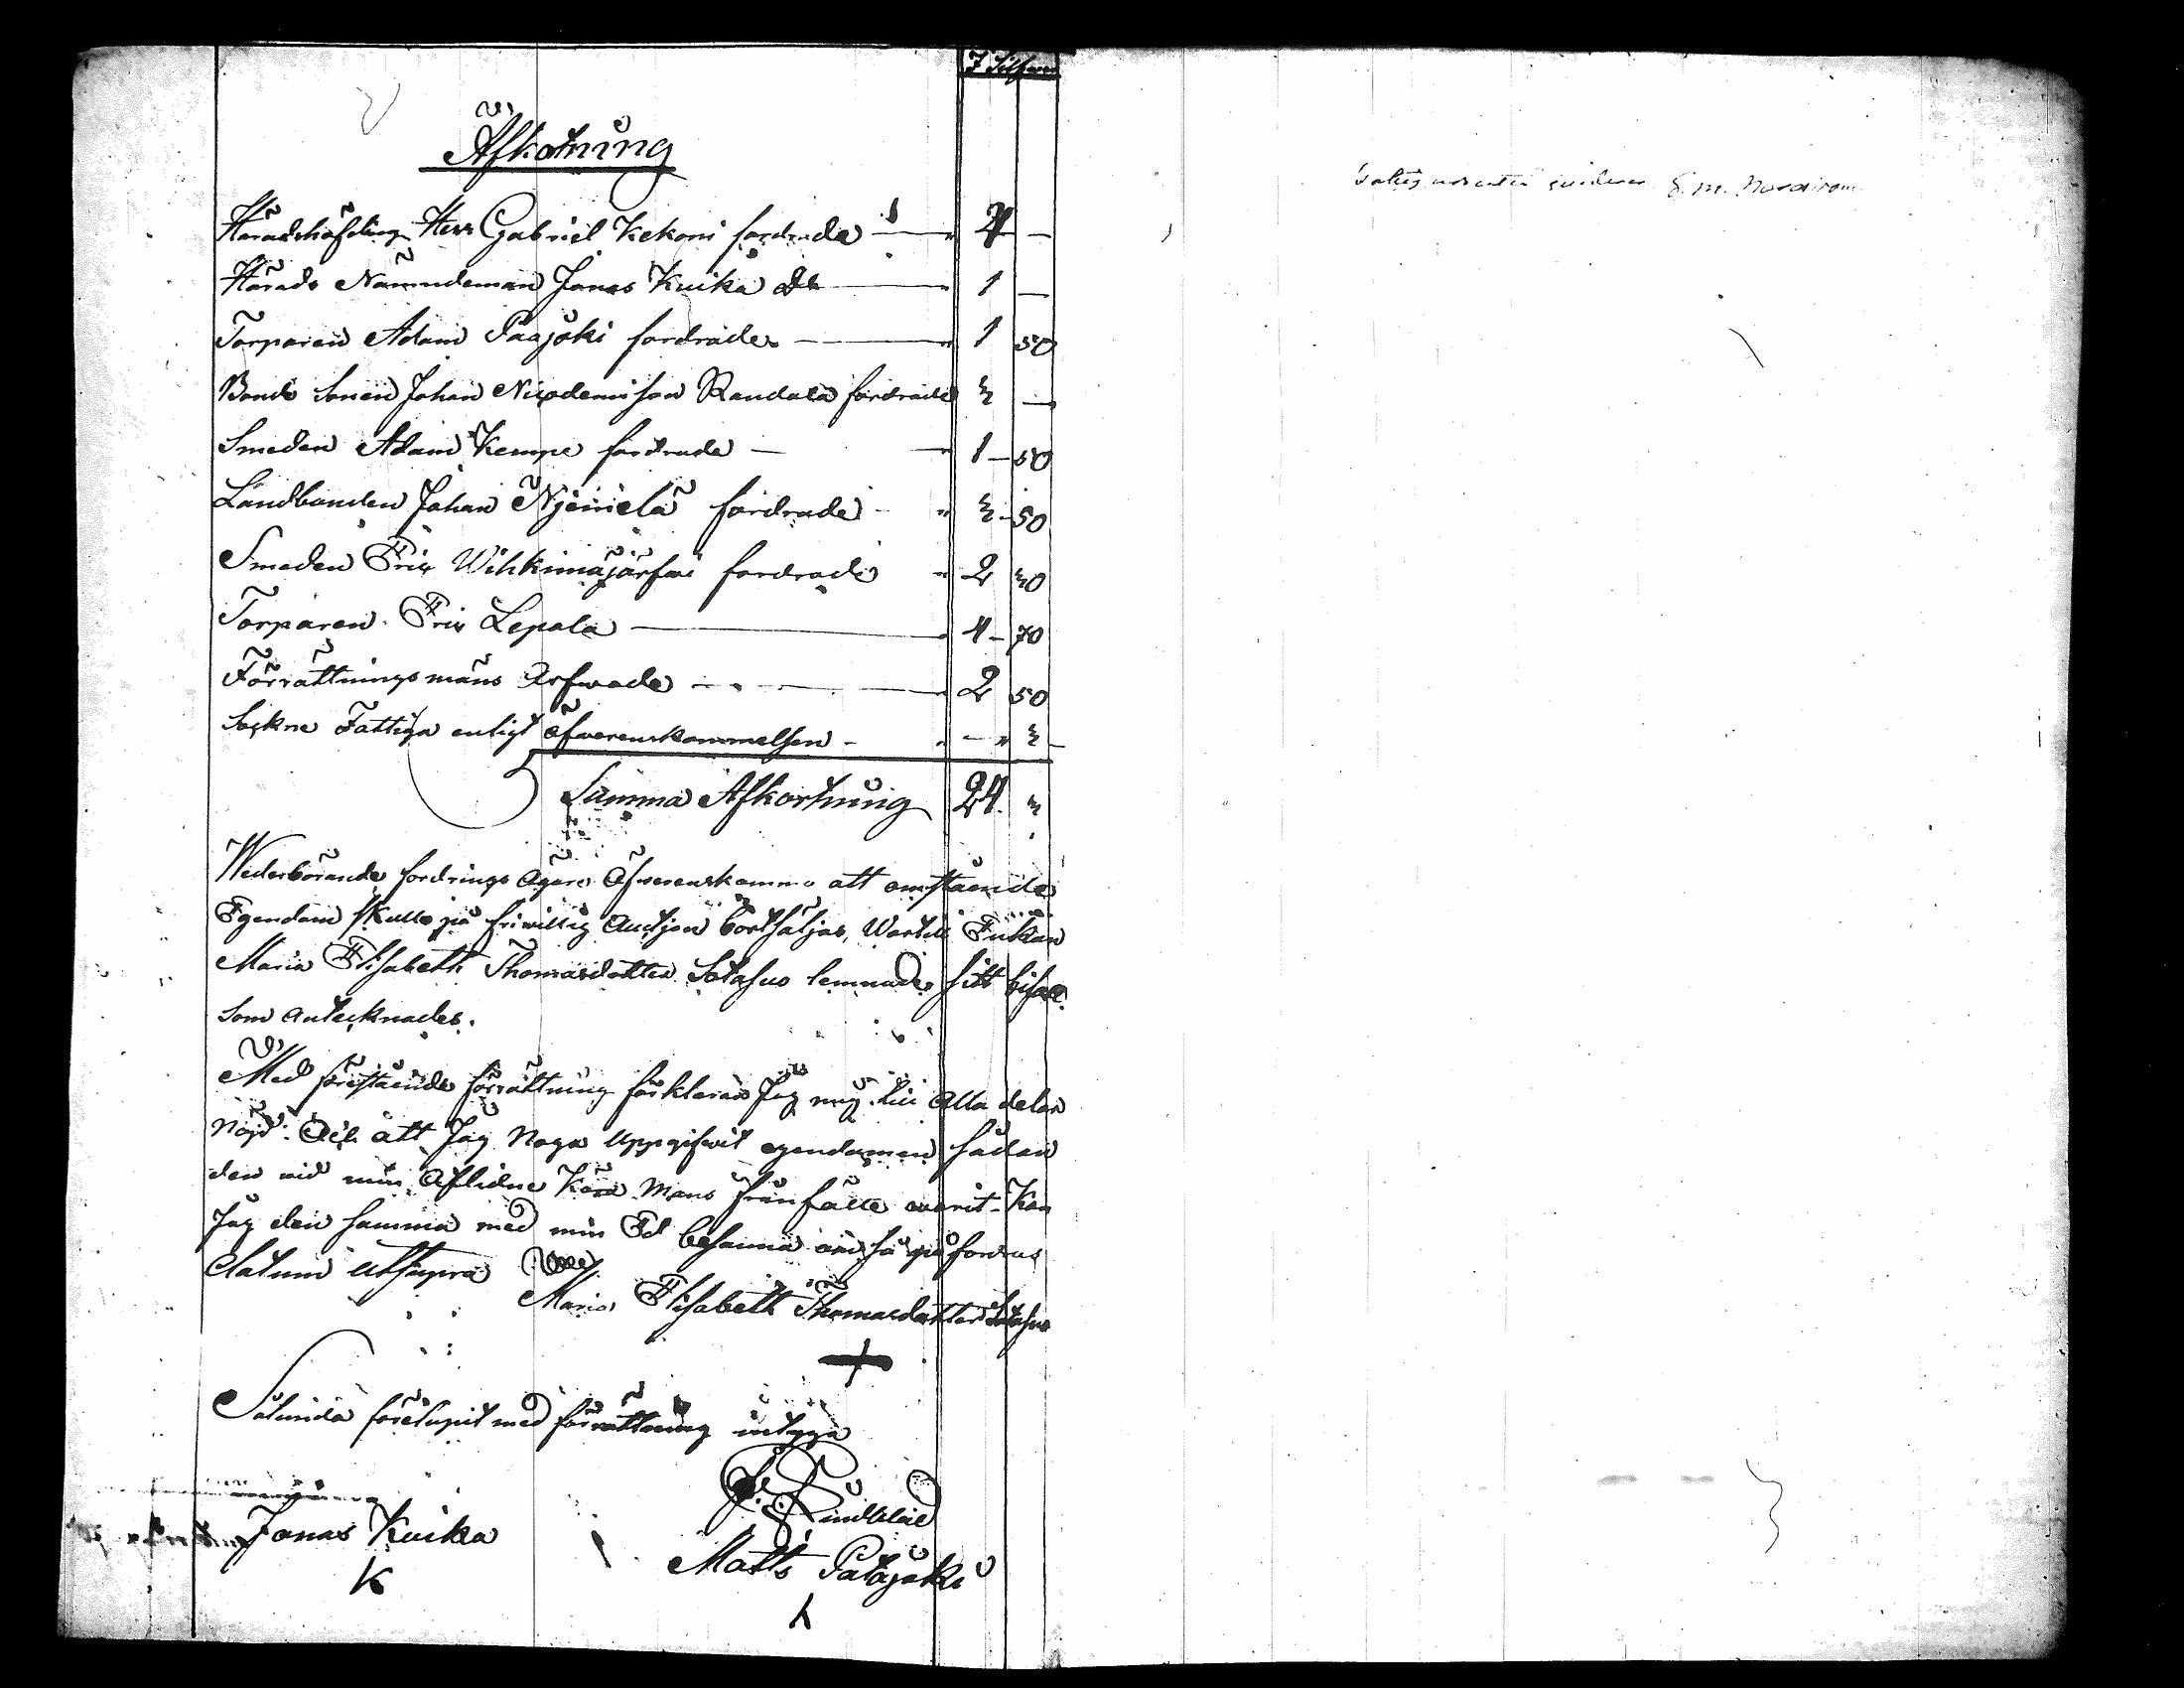 I Silfwer
Afkortning
Häradshöfding Herr Gabriel Kekoni fordrade 4 —
Härads Nämndeman Jonas Kuika do 1 —
Torparen Adam Paajoki fordrade 1 50
Bonde Sonen Johan Nicodemisson Randala fordrade 3 —
Smeden Adam Kempe fordrade — 1 — 50
Landbonden Johan fordrade 3 - 50
Smeden Eric Wihkimäjärfwi fordrade 2 30
Torparen Eric Lepala — 4 — 70
Förrättnings mäns Arfwode — 2 50
Sockne Fattiga enligt öfwerenskommelsen - — 3 —
Summa Afkortning 24. 3
Wederbörande fordrings ägare öfwerenskommo att omstående
Egendom skulle på friwillig Auctjon bortsäljas, Wartill Enkan
Maria Elisabeth Thomasdotter Satasuo lemnade sitt bifall
som antecknades.
Med förestående förrättning förklarar Jag mig till alla delar
nöjd. Och att Jag Noga uppgifwit egendomen sådan
den wid min Aflidne Kära Mans frånfälle warit - Kan
Jag den samma med min Ed besanna om så på fordras
datum utsupra
Maria Elisabeth Thomasdotter Satasuo
Sålunda förelupit med förrättning intyga
Lindblad
Jonas Kuika
Matts Patajoki
K